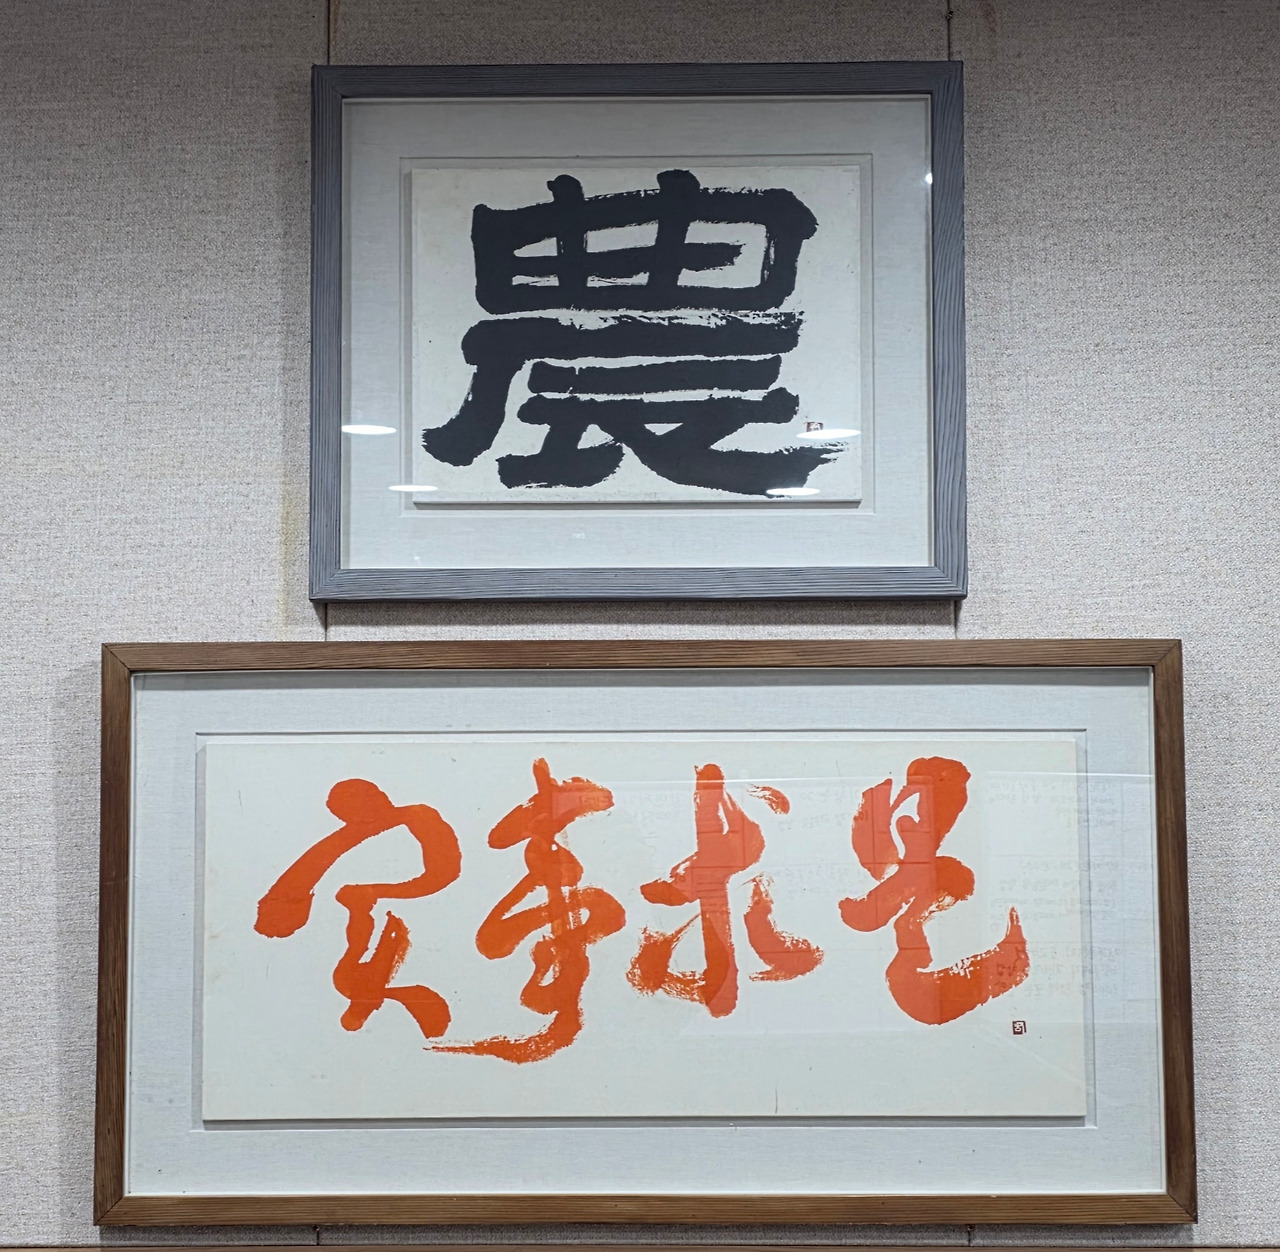 農
实事求是